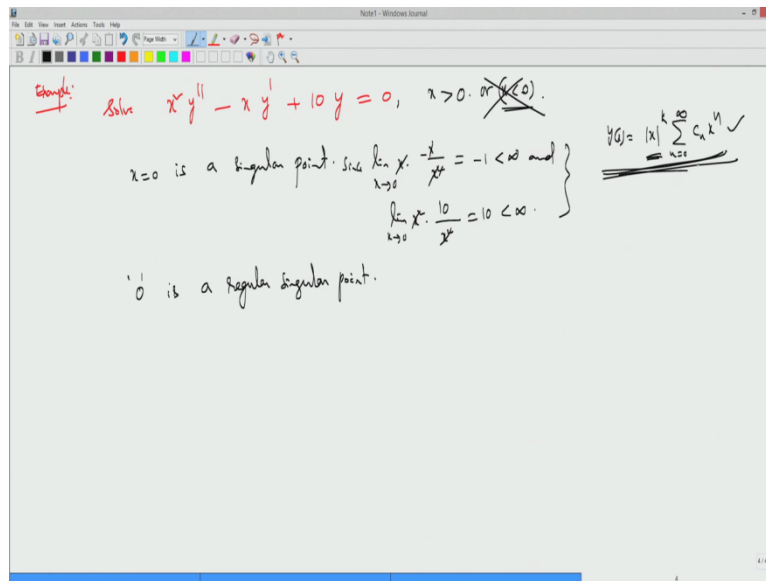 Note1 - Windows Journal
File Edit View Insert Actions Tools Help
Page Width
B I
Example: Solve x² y'' − x y' + 10 y = 0, x > 0. or (x < 0).
y(x) = |x|^k ∑_{n=0}^{∞} c_n x^n ✓
x=0 is a singular point. Since lim_{x→0} x · −x/x² = −1 < ∞ and
lim_{x→0} x² · 10/x² = 10 < ∞.
'0' is a regular singular point.